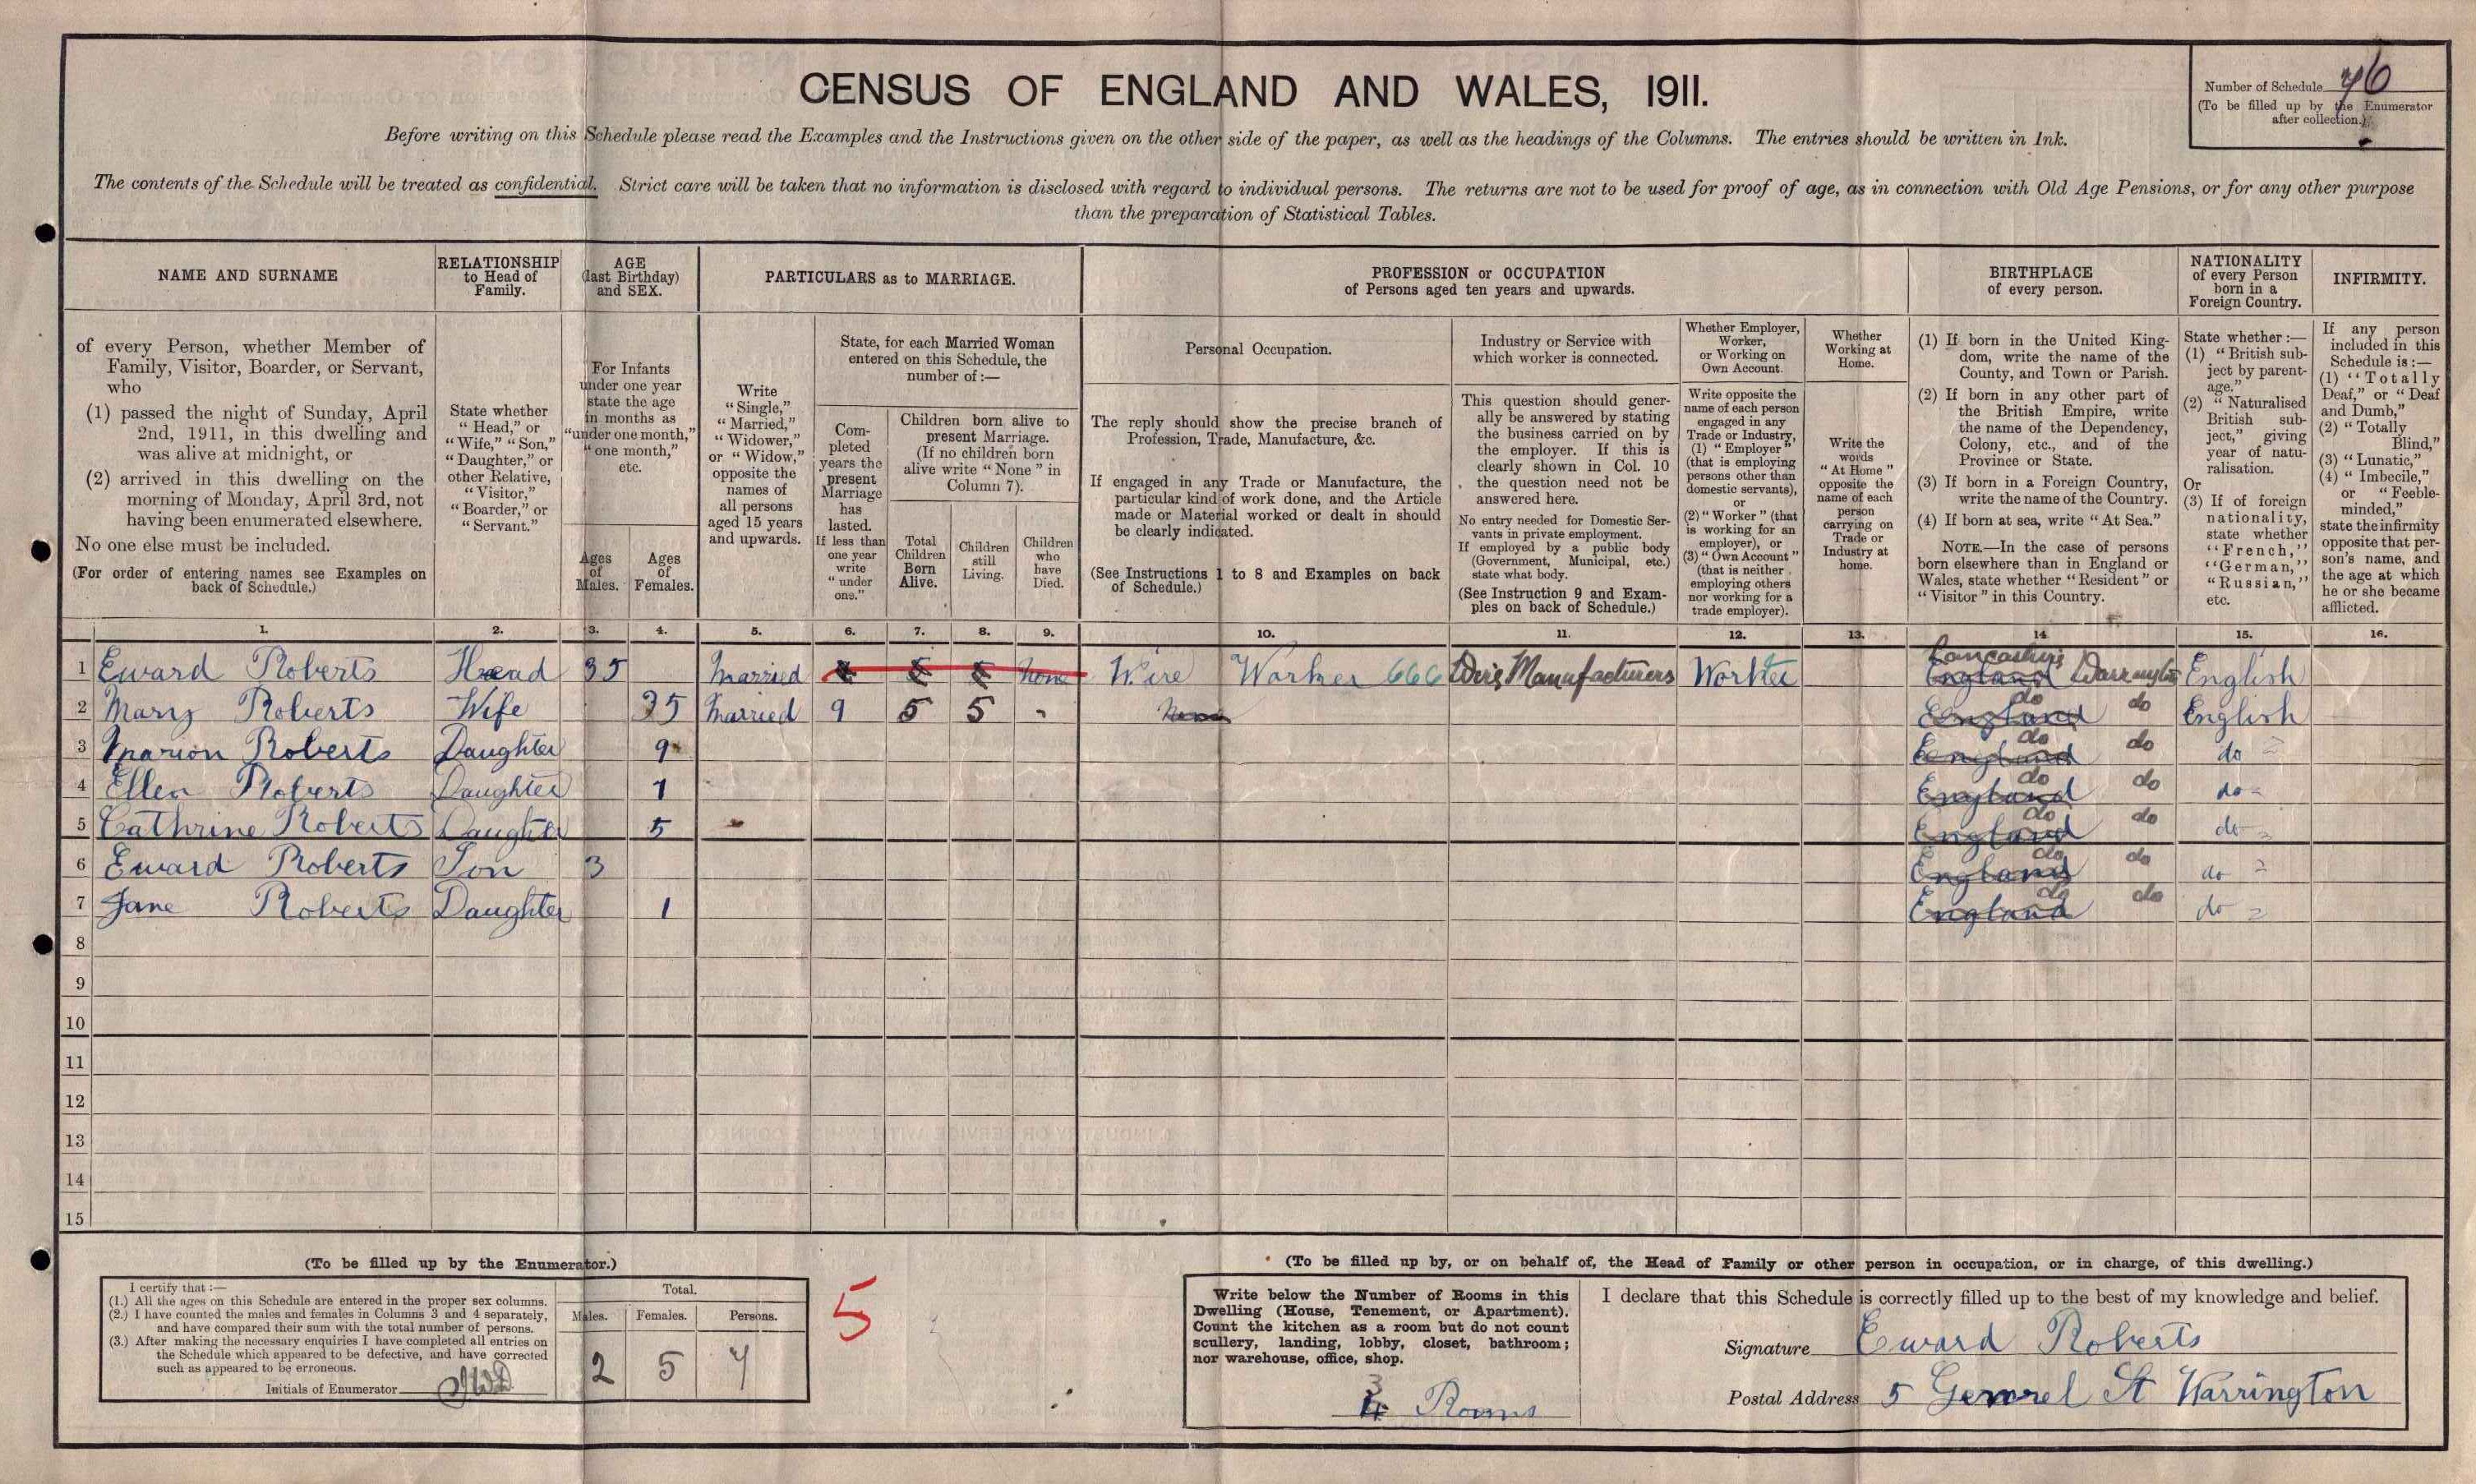 CENSUS OF ENGLAND AND WALES, 1911.
Number of Schedule 76
(To be filled up by the Enumerator
after collection.)
Before writing on this Schedule please read the Examples and the Instructions given on the other side of the paper, as well as the headings of the Columns. The entries should be written in Ink.
The contents of the Schedule will be treated as confidential. Strict care will be taken that no information is disclosed with regard to individual persons. The returns are not to be used for proof of age, as in connection with Old Age Pensions, or for any other purpose
than the preparation of Statistical Tables.
NAME AND SURNAME
of every Person, whether Member of
Family, Visitor, Boarder, or Servant,
who
(1) passed the night of Sunday, April
2nd, 1911, in this dwelling and
was alive at midnight, or
(2) arrived in this dwelling on the
morning of Monday, April 3rd, not
having been enumerated elsewhere.
No one else must be included.
(For order of entering names see Examples on
back of Schedule.)
RELATIONSHIP
to Head of
Family.
State whether
"Head," or
"Wife," "Son,"
"Daughter," or
other Relative,
"Visitor,"
"Boarder," or
"Servant."
AGE
(last Birthday)
and SEX.
For Infants
under one year
state the age
in months as
"under one month,"
"one month,"
etc.
Ages
of
Males.
Ages
of
Females.
PARTICULARS as to MARRIAGE.
Write
"Single,"
"Married,"
"Widower,"
or "Widow,"
opposite the
names of
all persons
aged 15 years
and upwards.
State, for each Married Woman
entered on this Schedule, the
number of:—
Com-
pleted
years the
present
Marriage
has
lasted.
If less than
one year
write
"under
one."
Children born alive to
present Marriage.
(If no children born
alive write "None" in
Column 7).
Total
Children
Born
Alive.
Children
still
Living.
Children
who
have
Died.
PROFESSION or OCCUPATION
of Persons aged ten years and upwards.
Personal Occupation.
The reply should show the precise branch of
Profession, Trade, Manufacture, &c.
If engaged in any Trade or Manufacture, the
particular kind of work done, and the Article
made or Material worked or dealt in should
be clearly indicated.
(See Instructions 1 to 8 and Examples on back
of Schedule.)
Industry or Service with
which worker is connected.
This question should gener-
ally be answered by stating
the business carried on by
the employer. If this is
clearly shown in Col. 10
the question need not be
answered here.
No entry needed for Domestic Ser-
vants in private employment.
If employed by a public body
(Government, Municipal, etc.)
state what body.
(See Instruction 9 and Exam-
ples on back of Schedule.)
Whether Employer,
Worker,
or Working on
Own Account.
Write opposite the
name of each person
engaged in any
Trade or Industry,
(1) "Employer"
(that is employing
persons other than
domestic servants),
or
(2) "Worker" (that
is working for an
employer), or
(3) "Own Account"
(that is neither
employing others
nor working for a
trade employer).
Whether
Working at
Home.
Write the
words
"At Home"
opposite the
name of each
person
carrying on
Trade or
Industry at
home.
BIRTHPLACE
of every person.
(1) If born in the United King-
dom, write the name of the
County, and Town or Parish.
(2) If born in any other part of
the British Empire, write
the name of the Dependency,
Colony, etc., and of the
Province or State.
(3) If born in a Foreign Country,
write the name of the Country.
(4) If born at sea, write "At Sea."
NOTE.—In the case of persons
born elsewhere than in England or
Wales, state whether "Resident" or
"Visitor" in this Country.
NATIONALITY
of every Person
born in a
Foreign Country.
State whether:—
(1) "British sub-
ject by parent-
age."
(2) "Naturalised
British sub-
ject," giving
year of natu-
ralisation.
Or
(3) If of foreign
nationality,
state whether
"French,"
"German,"
"Russian,"
etc.
INFIRMITY.
If any person
included in this
Schedule is:—
(1) "Totally
Deaf," or "Deaf
and Dumb,"
(2) "Totally
Blind,"
(3) "Lunatic,"
(4) "Imbecile,"
or "Feeble-
minded,"
state the infirmity
opposite that per-
son's name, and
the age at which
he or she became
afflicted.
1. 2. 3. 4. 5. 6. 7. 8. 9. 10. 11. 12. 13. 14 15. 16.
Lancashire
1 Eward Roberts Head 35 Married None Wire Worker 666 Wire Manufacturers Worker England Warrington English
do
2 Mary Roberts Wife 35 Married 9 5 5 - None England do English
do
3 Marion Roberts Daughter 9 England do do
do
4 Ellen Roberts Daughter 7 England do do
do
5 Cathrine Roberts Daughter 5 England do do
do
6 Eward Roberts Son 3 England do do
do
7 Jane Roberts Daughter 1 England do do
8
9
10
11
12
13
14
15
(To be filled up by the Enumerator.)
I certify that:—
(1.) All the ages on this Schedule are entered in the proper sex columns.
(2.) I have counted the males and females in Columns 3 and 4 separately,
and have compared their sum with the total number of persons.
(3.) After making the necessary enquiries I have completed all entries on
the Schedule which appeared to be defective, and have corrected
such as appeared to be erroneous.
Initials of Enumerator
Total.
Males. Females. Persons.
2 5 7
5
(To be filled up by, or on behalf of, the Head of Family or other person in occupation, or in charge, of this dwelling.)
Write below the Number of Rooms in this
Dwelling (House, Tenement, or Apartment).
Count the kitchen as a room but do not count
scullery, landing, lobby, closet, bathroom;
nor warehouse, office, shop.
3
4 Rooms
I declare that this Schedule is correctly filled up to the best of my knowledge and belief.
Signature Eward Roberts
Postal Address 5 St Warrington